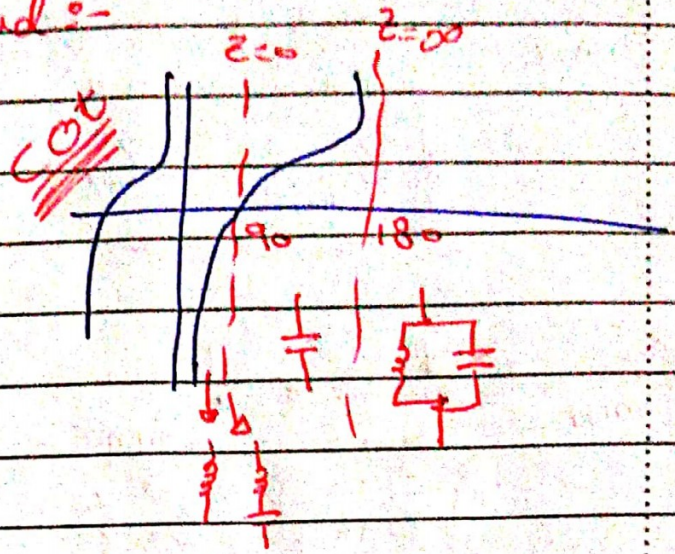 Z=0 Z=∞
cot
90 180